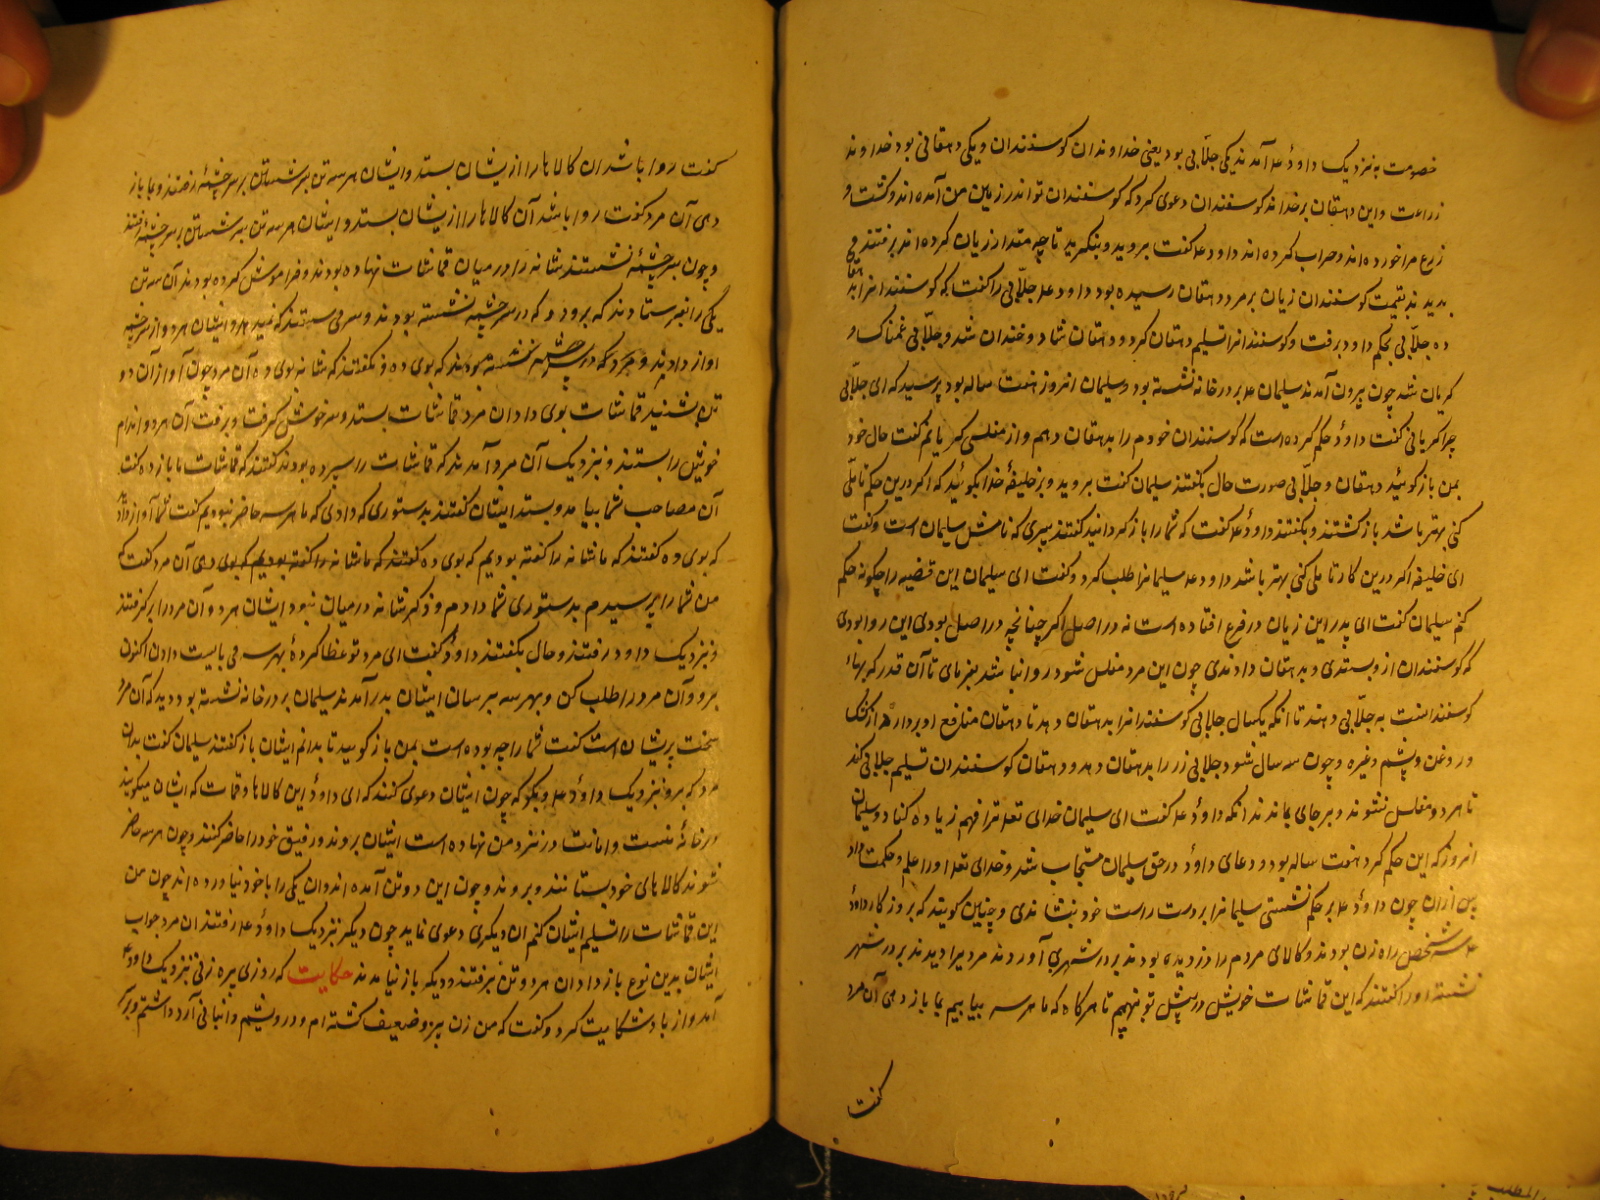 خصومت به نزدیک داودٔ عد آمدند یکی جلّابی بود یعنی خداوندان کوسفندان و یکی دهقانی بود خداوند
زراعت و این دهقان بر خداوند کوسفندان دعوی کرد که کوسفندان تو اندر زمین من آمده اند و کشت و
زرع مرا خورده اند و خراب کرده اند داود عد کفت بروید و بنکرید تا چه مقدار زیان کرده اند برفتند
بدیدند قیمت کوسفندان زیان بر مرد دهقان رسیده بود داود عد جلّابی را کفت که کوسفندانرا
ده جلّابی بحکم داود برفت و کوسفندانرا تسلیم دهقان کرد و دهقان شاد و خندان شد و جلّابی غمناک و
کریان شد چون بیرون آمدند سلیمان عد بر در خانه نشسته بود و سلیمان انروز هفت ساله بود پرسید که ای جلّابی
چرا کریانی کفت داودٔ حکم کرده است که کوسفندان خودم را بدهقان دهم و از مفلسی کریانم کفت حال خود
بمن باز کوئید دهقان و جلّابی صورت حال بکفتند سلیمان کفت بروید و بر خلیفهٔ خدا بکوئید که اکر درین حکم تاملی
کنی بهتر باشد باز کشتند و بکفتند داودٔ عد کفت که شما را باز که دانید کفتند پسری که نامش سلیمان است و کفت
ای خلیفه اکر درین کار تاملی کنی بهتر باشد داود عد سلیمانرا طلب کرد و کفت ای سلیمان این قضیه را چکونه حکم
کنم سلیمان کفت ای پدر این زیان در فرع افتاده است نه در اصل اکر چنانچه در اصل بودی این روا بودی
که کوسفندان ازو بستدی و بدهقان دادندی چون این مرد مفلس شود روا نباشد بفرمای تا آن قدر که بهاء
کوسفند است به جلّابی دهند تا انکه یکسال جلابی کوسفندانرا بدهقان دهد تا دهقان منافع او بردارد از کشک
و روغن و پشم و غیره و چون سه سال شود جلابی زر را بدهقان دهد و دهقان کوسفندان تسلیم جلابی کند
تا هر دو مفلس نشوند و بر جای بمانند انکه داودٔ عد کفت ای سلیمان خدای تعد ترا فهم زیاده کناد و سلیمان
انروز که این حکم کرد هفت ساله بود و دعای داودٔ در حق سلیمان مستجاب شد و خدای تعد او را علم و حکمت داد
پس ازان چون داودٔ عد بر حکم نشستی سلیمانرا بر دست راست خود بنشاندی و چنین کویند که بروز کار داودٔ
عد سه شخص راه زن بودند و کالای مردم را دزدیده بودند بدر شهری آوردند مردیرا دیدند بر در شهر
نشسته او را کفتند که این قماشات خویش در پیش تو بنهیم تا هر کاه که ما هر سه بیاییم بما باز دهی آن مرد
کفت
کفت روا باشد ان کالاها را ازیشان بستد و ایشان هر سه تن بنشستن بر سر چشمهٔ رفتند و بما باز
دهی آن مرد کفت روا باشد آن کالاها را ازیشان بستد و ایشان هر سه تن بنشستن بر سر چشمهٔ رفتند
و چون بسر چشمهٔ نشستند شانه را در میان قماشات نهاده بودند و فراموش کرده بودند آن سه تن
یکی را بفرستادند که برود و که در سر چشمه نشسته بودند و سر می شستند هر دو از سر چشمه
اواز دادند و مرد که در سر چشمه نشسته بودند که بوی ده و نکفتند که شانه بوی ده آن مرد چون آواز آن دو
تن بشنید قماشات بوی داد ان مرد قماشات بستد و سر خویش کرفت و برفت آن هر دو اندام
خویش را بستند و بنزدیک آن مرد آمدند که قماشات را سپرده بودند کفتند که قماشات ما باز ده کفت
آن مصاحب شما بیامد و بستد ایشان کفتند بدستوری که دادی که ما هر سه حاضر نبودیم کفت شما آواز دادید
که بوی ده کفتند که ما شانه را کفته بودیم که بوی ده کفتند که ما شانه را کفته بودیم که بوی دهی آن مرد کفت که
من شما را پرسیدم بدستوری شما دادم و ذکر شانه در میان نبود ایشان هر دو آن مرد را بر کرفتند
و بنزدیک داود رفتند و حال بکفتند داودٔ کفت ای مرد تو خطا کردهٔ بهر سه می بایست دادن اکنون
برو و آن مرد را طلب کن و بهر سه برسان ایشان بدر آمدند سلیمان بر در خانه نشسته بود دید که آن مرد
سخت پریشان است کفت شما را چه بوده است بمن باز کویید تا بدانم ایشان باز کفتند سلیمان کفت بدان
مرد که برو بنزدیک داودٔ عد و بکو که چون ایشان دعوی کنند که ای داودٔ این کالاها و قماشات که ایشان میکویند
در خانهٔ منست و امانت در نزد من نهاده است ایشان بروند و رفیق خود را حاضر کنند و چون هر سه حاضر
شوند کالاهای خود بستانند و بروند و چون این دو تن آمده اند و ان یکی را با خود نیاورده اند چون من
این قماشات را تسلیم ایشان کنم ان دیکری دعوی نماید چون دیکر بنزدیک داودٔ عد رفتند ان مرد جواب
ایشان بدین نوع باز داد ان هر دو تن برفتند و دیکر باز نیامدند حکایت که روزی پیره زنی بنزدیک داودٔ عد
آمد و از باد شکایت کرد و کفت که من زن پیر و ضعیف کشته ام و درویشم و انبانی آرد داشتم و بر